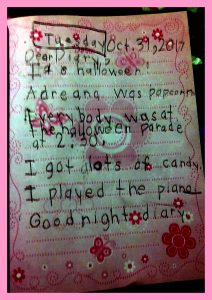 Tuesday Oct. 31, 2017
Dear Diary,
It's halloween.
Adreana was popcorn
Everybody was at
The halloween parade
at 2:30.
I got lots of candy.
I played the piano
Good night diary